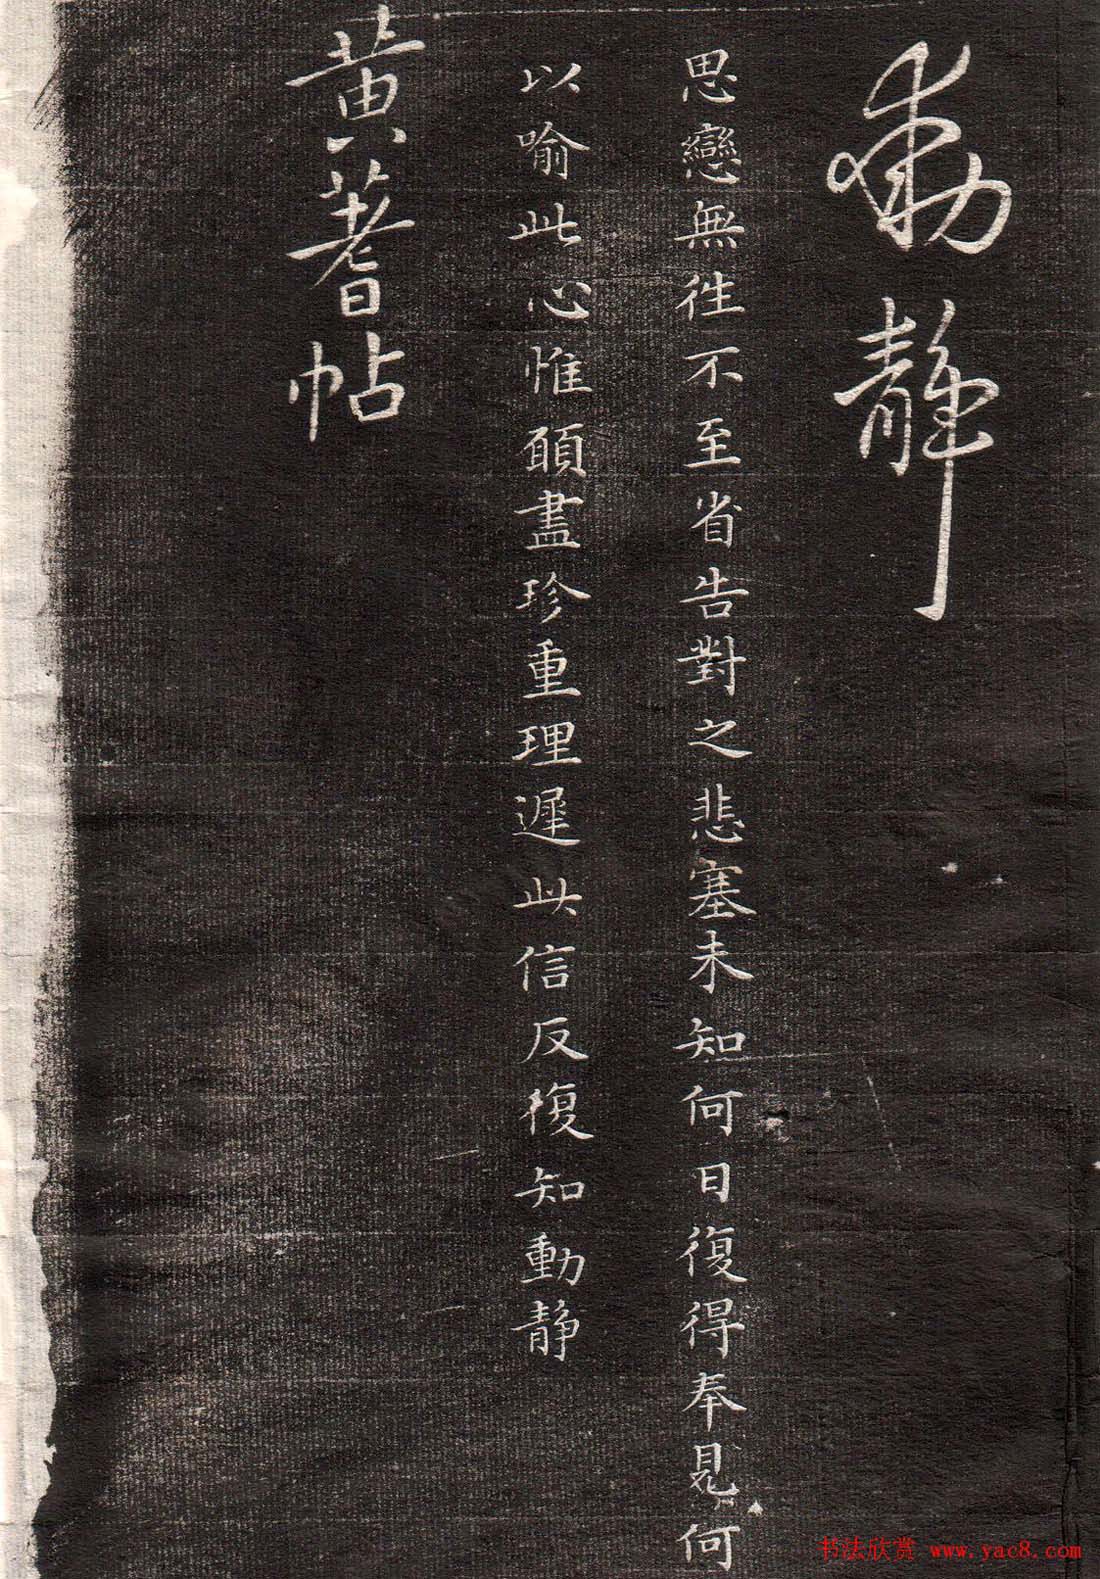 動靜
思戀無往不至省告對之悲塞未知何日復得奉見何
以喻此心惟願盡珍重理遲此信反復知動静
黄耆帖
书法欣赏 www.yac8.com